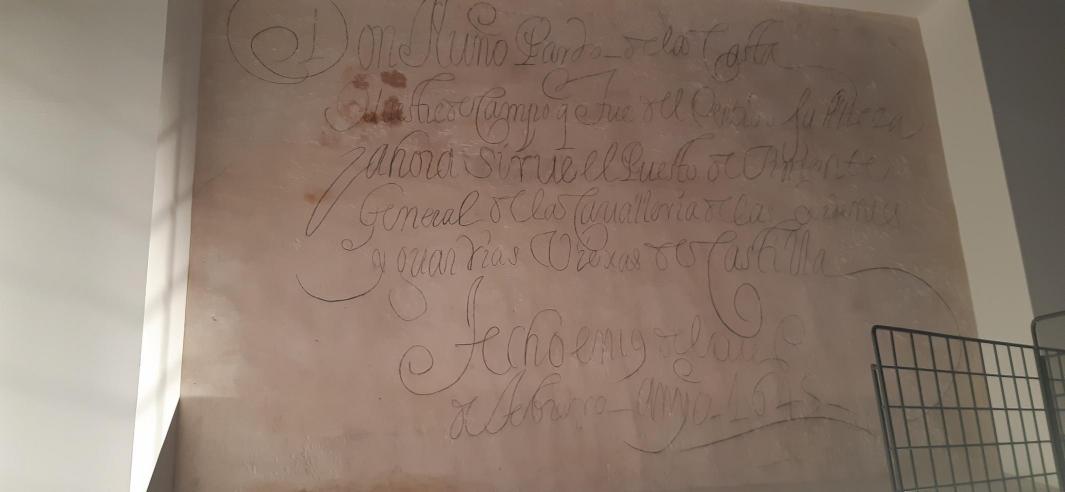 Don Nuño Pardo de la Casta
Mastre de Campo q e fue del su Alteza
y ahora sirue el Puesto de
General de la Caualleria de las
guardias Viexas de Castilla
fecho en
de febrero año 1645